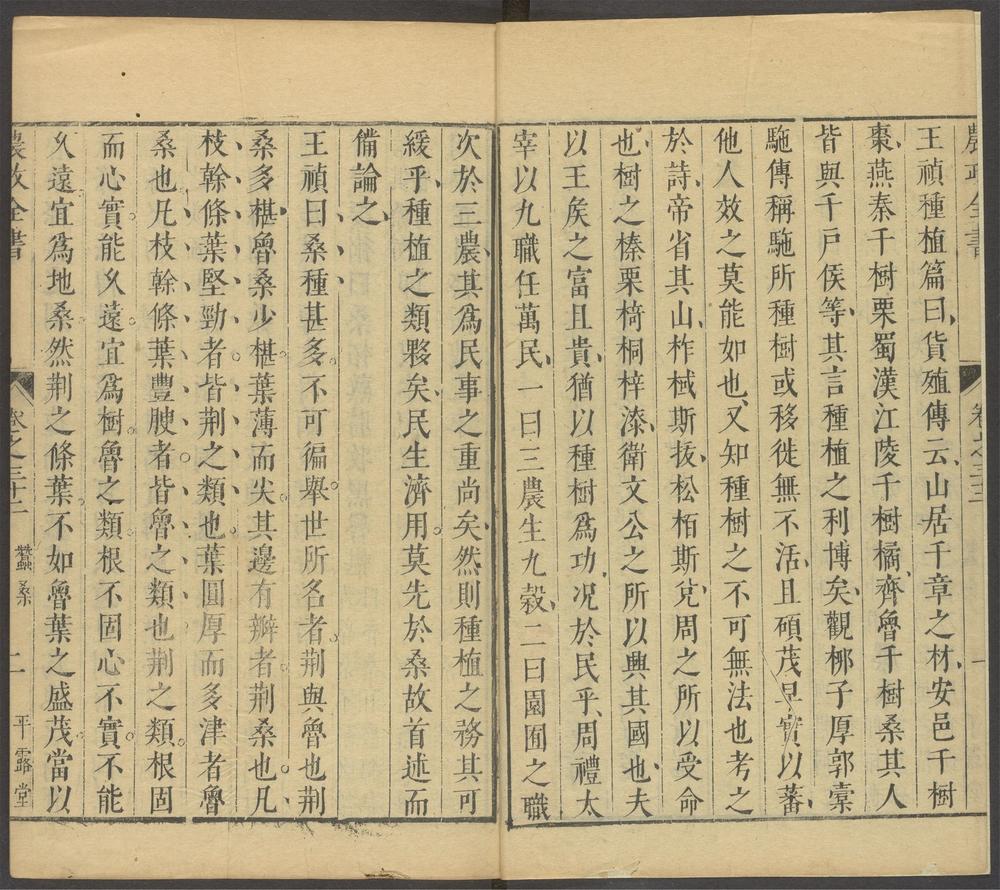 農政全書 卷之三十二 一
王禎種植篇曰貨殖傳云山居千章之材安邑千樹
棗燕秦千樹栗蜀漢江陵千樹橘齊魯千樹桑其人
皆與千戸侯等其言種植之利博矣觀栁子厚郭橐
駞傳稱駞所種樹或移徙無不活且碩茂早實以蕃
他人效之莫能如也又知種樹之不可無法也考之
於詩帝省其山柞棫斯拔松栢斯兌周之所以受命
也樹之榛栗椅桐梓漆衛文公之所以興其國也夫
以王矦之富且貴猶以種樹爲功况於民乎周禮太
宰以九職任萬民一曰三農生九穀二曰園囿之職
次於三農其爲民事之重尚矣然則種植之務其可
緩乎種植之類夥矣民生濟用莫先於桑故首述而
備論之
王禎曰桑種甚多不可徧舉世所名者荆與魯也荆
桑多椹魯桑少椹葉薄而尖其邊有瓣者荆桑也凡
枝幹條葉堅勁者皆荆之類也葉圓厚而多津者魯
桑也凡枝幹條葉豐腴者皆魯之類也荆之類根固
而心實能乆遠宜爲樹魯之類根不固心不實不能
乆遠宜爲地桑然荆之條葉不如魯葉之盛茂當以
農政全書 卷之三十二 蠶桑 二 平露堂